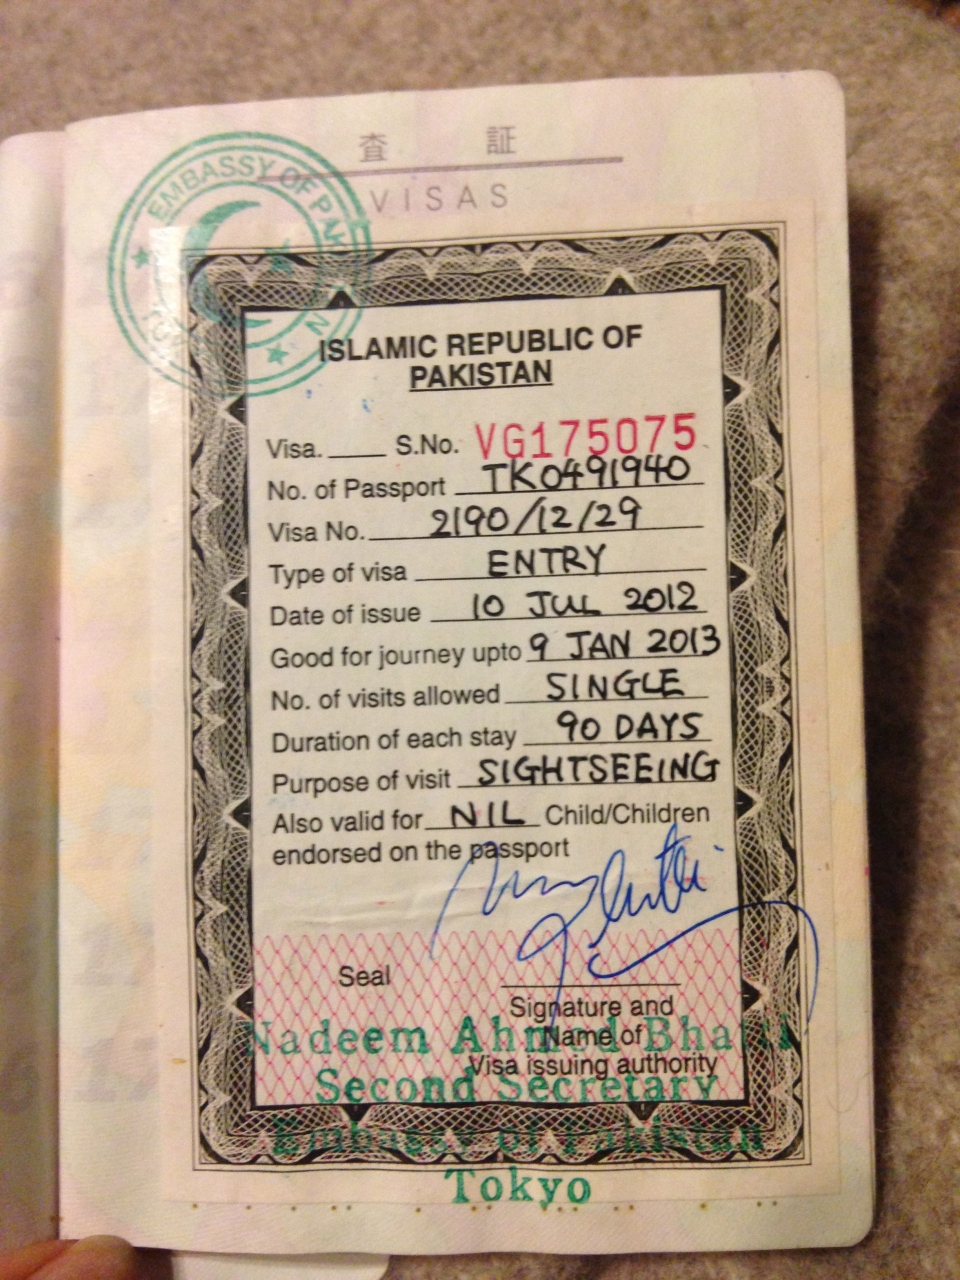 査 証
VISAS
EMBASSY OF PAK
ISLAMIC REPUBLIC OF
PAKISTAN
Visa. ____ S.No. VG175075
No. of Passport TK0491940
Visa No. 2190/12/29
Type of visa ENTRY
Date of issue 10 JUL 2012
Good for journey upto 9 JAN 2013
No. of visits allowed SINGLE
Duration of each stay 90 DAYS
Purpose of visit SIGHTSEEING
Also valid for NIL Child/Children
endorsed on the passport
Seal
Signature and
Name of
Visa issuing authority
Nadeem Ahmed Bhatti
Second Secretary
Embassy of Pakistan
Tokyo